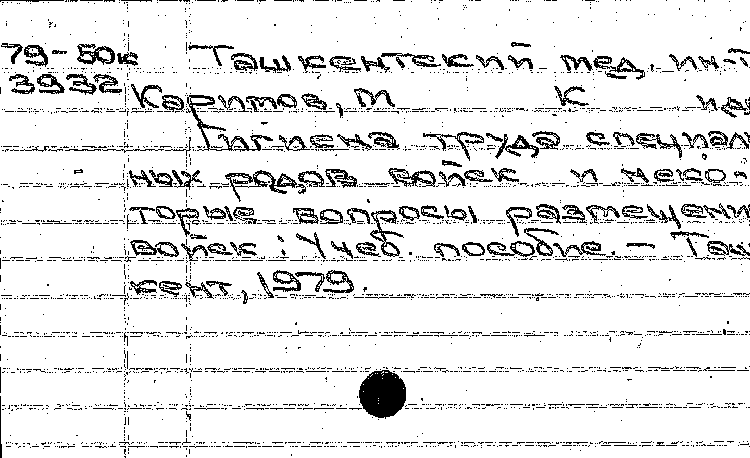 79-50к Ташкентский мед. ин-т
3932 Каримов, М К
Гигиена труда специаль
ных родов войск и неко-
торые вопросы размещени
войск : Учеб. пособие. - Таш
кент, 1979.